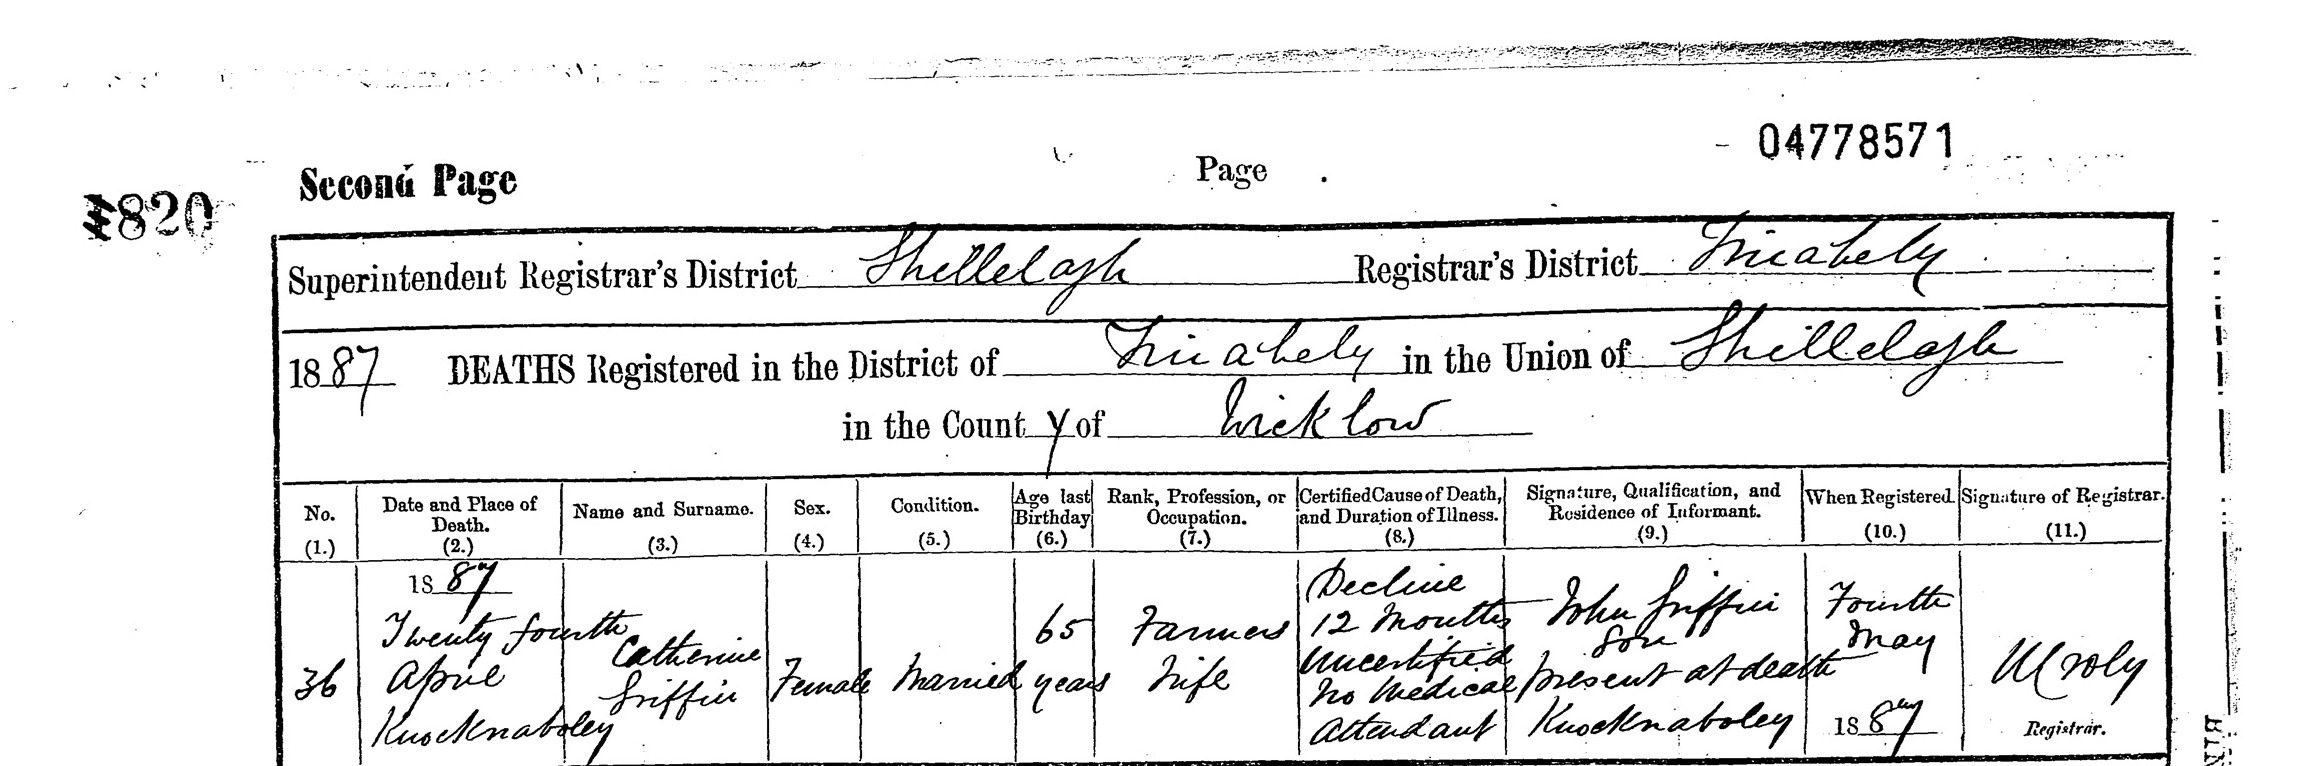 04778571
Second Page Page .
1820
Superintendent Registrar's District Shillelagh Registrar's District Tinahely
1887 DEATHS Registered in the District of Tinahely in the Union of Shillelagh
in the County of Wicklow
No. (1.)
Date and Place of Death. (2.)
Name and Surname. (3.)
Sex. (4.)
Condition. (5.)
Age last Birthday (6.)
Rank, Profession, or Occupation. (7.)
Certified Cause of Death, and Duration of Illness. (8.)
Signature, Qualification, and Residence of Informant. (9.)
When Registered. (10.)
Signature of Registrar. (11.)
36
1887
Twenty fourth
April
Knocknaboley
Catherine
Griffin
Female
Married
65
years
Farmers
Wife
Decline
12 Months
Uncertified
No Medical
Attendant
John Griffin
Son
present at death
Knocknaboley
Fourth
May
1887
Registrar.